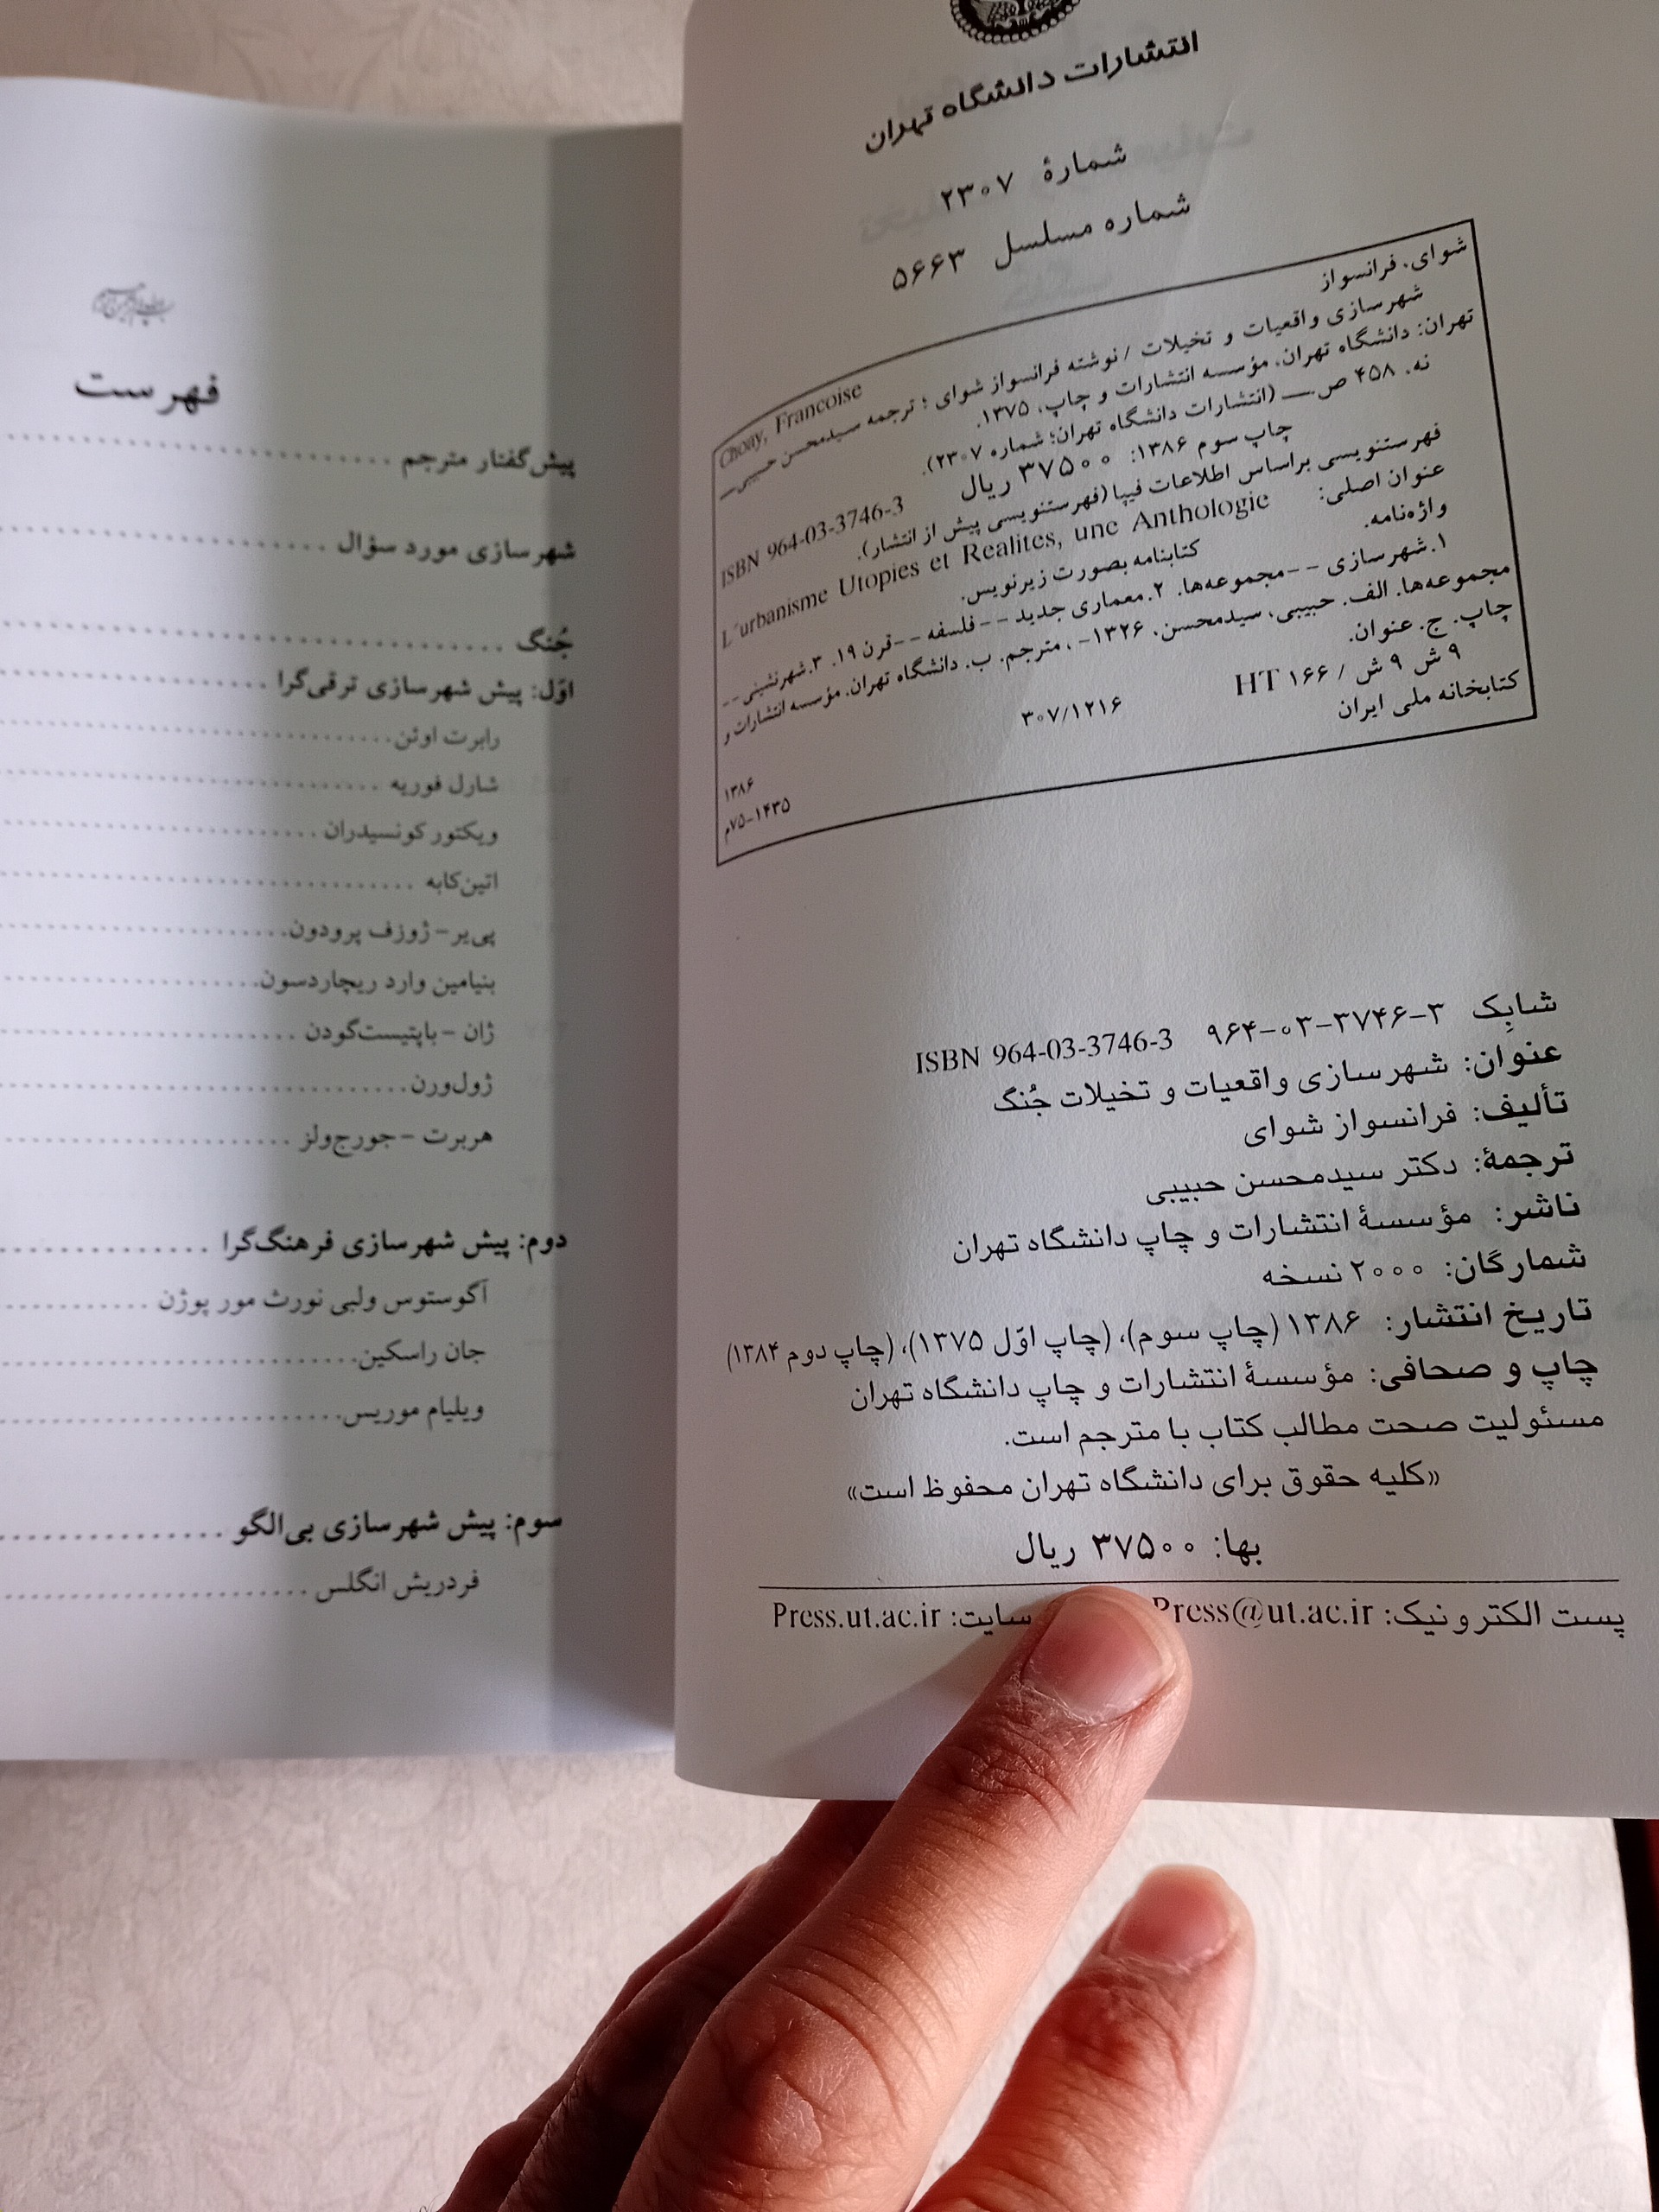 انتشارات دانشگاه تهران
شمارهٔ ۲۳۰۷
شماره مسلسل ۵۶۶۳
شوای، فرانسواز
Choay, Francoise
شهرسازی واقعیات و تخیلات / نوشته فرانسواز شوای ؛ ترجمه سیدمحسن حبیبی__
تهران: دانشگاه تهران، مؤسسه انتشارات و چاپ، ۱۳۷۵.
نه، ۴۵۸ ص.__ (انتشارات دانشگاه تهران؛ شماره ۲۳۰۷).
ISBN 964-03-3746-3 چاپ سوم ۱۳۸۶: ۳۷۵۰۰ ریال
فهرستنویسی براساس اطلاعات فیپا (فهرستنویسی پیش از انتشار).
عنوان اصلی: L'urbanisme Utopies et Realites, une Anthologie
واژه‌نامه.
کتابنامه بصورت زیرنویس.
۱.شهرسازی --مجموعه‌ها. ۲.معماری جدید --فلسفه --قرن ۱۹. ۳.شهرنشینی --
مجموعه‌ها. الف. حبیبی، سیدمحسن، ۱۳۲۶- ، مترجم. ب. دانشگاه تهران. مؤسسه انتشارات و
چاپ. ج. عنوان.
۹ ش ۹ ش / HT ۱۶۶ ۳۰۷/۱۲۱۶ ۱۳۸۶
کتابخانه ملی ایران ۱۴۳۵-۷۵م
شابِک ۳-۳۷۴۶-۰۳-۹۶۴ ISBN 964-03-3746-3
عنوان: شهرسازی واقعیات و تخیلات جُنگ
تألیف: فرانسواز شوای
ترجمهٔ: دکتر سیدمحسن حبیبی
ناشر: مؤسسهٔ انتشارات و چاپ دانشگاه تهران
شمارگان: ۲۰۰۰ نسخه
تاریخ انتشار: ۱۳۸۶ (چاپ سوم)، (چاپ اوّل ۱۳۷۵)، (چاپ دوم ۱۳۸۴)
چاپ و صحافی: مؤسسهٔ انتشارات و چاپ دانشگاه تهران
مسئولیت صحت مطالب کتاب با مترجم است.
«کلیه حقوق برای دانشگاه تهران محفوظ است»
بها: ۳۷۵۰۰ ریال
پست الکترونیک: Press@ut.ac.ir سایت: Press.ut.ac.ir
فهرست
پیش‌گفتار مترجم
شهرسازی مورد سؤال
جُنگ
اوّل: پیش شهرسازی ترقی‌گرا
رابرت اوئن
شارل فوریه
ویکتور کونسیدران
اتین‌کابه
پی‌یر-ژوزف پرودون
بنیامین وارد ریچاردسون
ژان -باپتیست‌گودن
ژول‌ورن
هربرت -جورج‌ولز
دوم: پیش شهرسازی فرهنگ‌گرا
آگوستوس ولبی نورث مور پوژن
جان راسکین
ویلیام موریس
سوم: پیش شهرسازی بی‌الگو
فردریش انگلس